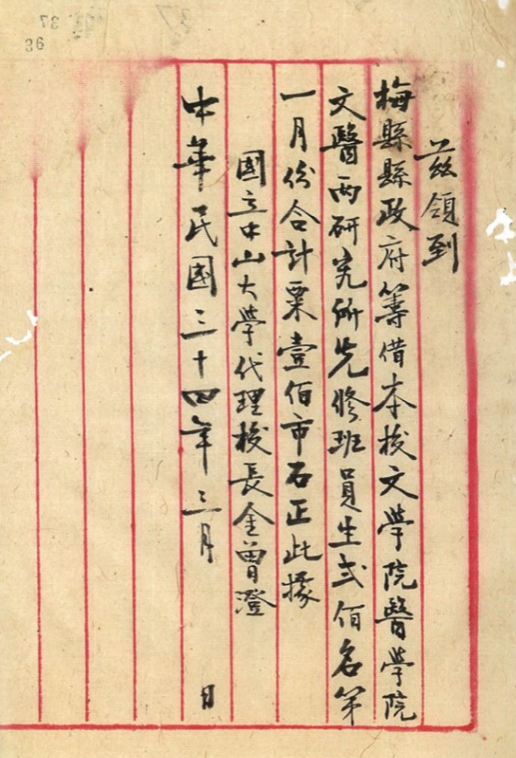 茲領到
梅縣縣政府籌借本校文學院醫學院
文醫兩研究所先修班員生弍佰名第
一月份合計粟壹佰市石正此據
國立中山大學代理校長金曾澄
中華民國三十四年三月 日
36
37